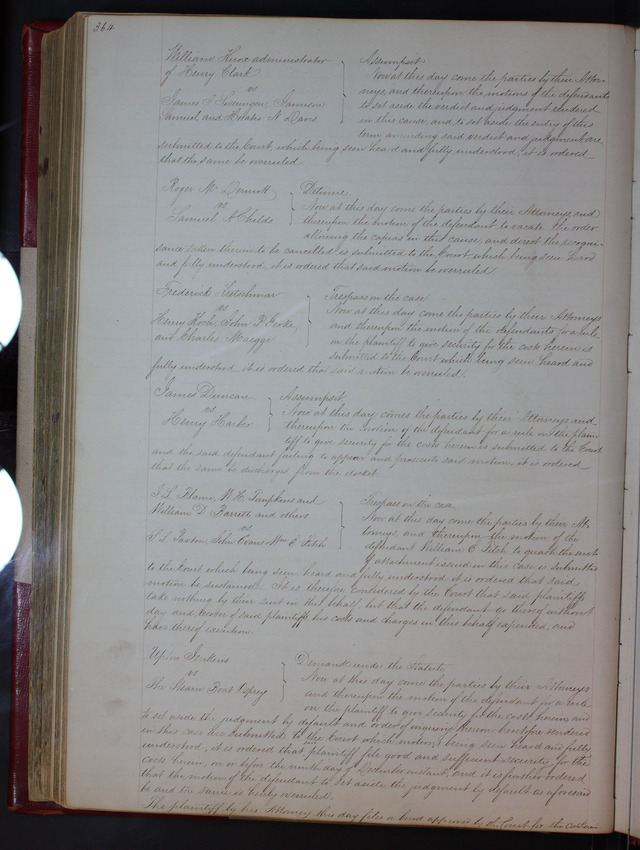 364
William Knox administrator } Assumpsit
of Henry Clark Now at this day come the parties by their Attor-
vs neys, and thereupon the motions of the defendants
James T Sweringen, Jameson to set aside the verdict and judgment rendered
Samuel and Horatio N Davis in this cause, and, to set aside the entry of this
term amending said verdict and judgment are
submitted to the Court, which being seen heard and fully understood, it is ordered
that the same be overruled.
Roger Mc Dermott } Detinue
vs Now at this day come the parties by their Attorneys, and
Samuel A Childs thereupon the motion of the defendant to vacate the order
allowing the capias in this cause, and direct the recogni-
sance taken therein to be cancelled is submitted to the Court which being seen heard
and fully understood, it is ordered that said motion be overruled.
Frederick Kretschmar } Trespass on the case
vs Now at this day come the parties by their Attorneys
Henry Koch, John P and thereupon the motion of the defendants for a rule
and Charles on the plaintiff to give security for the costs herein is
submitted to the Court which being seen heard and
fully understood it is ordered that said motion be overruled.
James Duncan } Assumpsit
vs Now at this day comes the parties by their Attorneys and
Henry Harber thereupon the motion of the defendant for a rule on the plain-
tiff to give security for the costs herein is submitted to the Court
and the said defendant failing to appear and prosecute said motion, it is ordered
that the same be discharged from the docket
W. H. Tompkins and } Trespass on the case
William D Barrett and others Now at this day come the parties by their At-
vs torneys, and thereupon the motion of the
John Evans Wm E Fitch defendant William E Fitch to quash the writ
of attachment issued in this case is submitted
to the Court which being seen heard and fully understood it is ordered that said
motion be sustained. It is therefore considered by the Court that said plaintiffs
take nothing by their suit in this behalf, but that the defendant go thereof without
day and recover of said plaintiffs his costs and charges in this behalf expended, and
have thereof execution.
Jenkins } Demand under the Statute
vs Now at this day come the parties by their Attorneys
The Steam Boat Osprey and thereupon the motion of the defendant for a rule
on the plaintiff to give security for the costs herein and
to set aside the judgment by default and order of inquiry thereon heretofore rendered
in this case are submitted to the Court which motions being seen heard and fully
understood, it is ordered that plaintiff file good and sufficient security for the
costs herein, on or before the ninth day of December instant, and it is further ordered
that the motion of the defendant to set aside the judgment by default as aforesaid
be and the same is hereby overruled.
The plaintiff by his Attorney this day files a bond approved by the Court for the